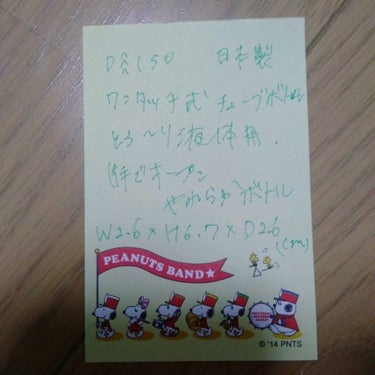 DAISO 日本製
ワンタッチ式 チューブボトル
とろ〜り液体用.
片手でオープン
やわらかボトル
W2.6×H6.7×D2.6
(cm)
PEANUTS BAND★
© '14 PNTS